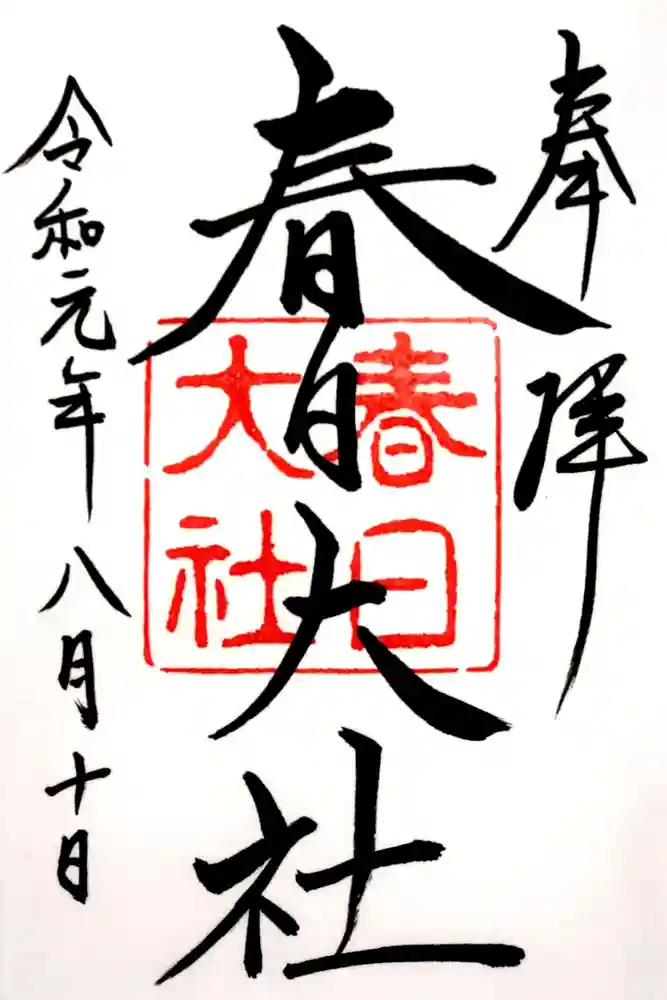 奉拝
春日大社
春日
大社
令和元年八月十日